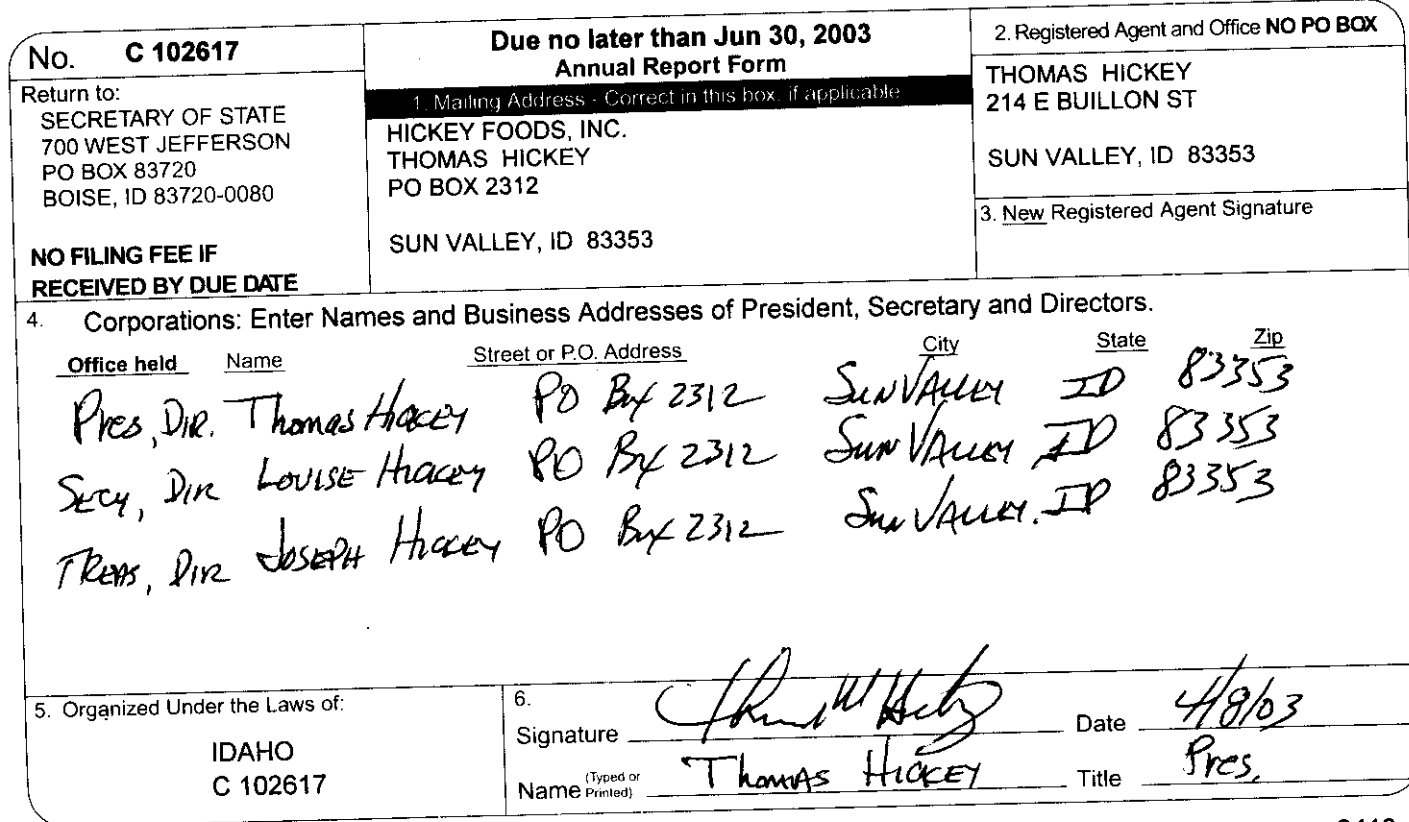 No. C 102617
Return to:
SECRETARY OF STATE
700 WEST JEFFERSON
PO BOX 83720
BOISE, ID 83720-0080
NO FILING FEE IF
RECEIVED BY DUE DATE
Due no later than Jun 30, 2003
Annual Report Form
1. Mailing Address - Correct in this box, if applicable
HICKEY FOODS, INC.
THOMAS HICKEY
PO BOX 2312
SUN VALLEY, ID 83353
2. Registered Agent and Office NO PO BOX
THOMAS HICKEY
214 E BUILLON ST
SUN VALLEY, ID 83353
3. New Registered Agent Signature
4. Corporations: Enter Names and Business Addresses of President, Secretary and Directors.
Office held Name Street or P.O. Address City State Zip
Pres, DIR. Thomas HICKEY PO Box 2312 SUN VALLEY ID 83353
SECY, DIR LOUISE HICKEY PO Box 2312 SUN VALLEY ID 83353
TREAS, DIR JOSEPH HICKEY PO Box 2312 Sun VALLEY, ID 83353
5. Organized Under the Laws of:
IDAHO
C 102617
6.
Signature Date 4/8/03
Name (Typed or Printed) ThomAS HICKEY Title Pres.